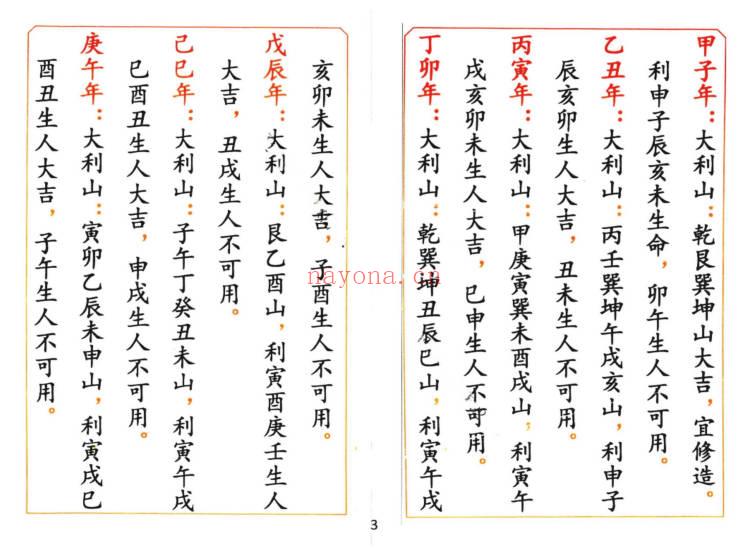 甲子年：大利山：乾艮巽坤山大吉，宜修造。
利申子辰亥未生命，卯午生人不可用。
乙丑年：大利山：丙壬巽坤午戌亥山，利申子
辰亥卯生人大吉，丑未生人不可用。
丙寅年：大利山：甲庚寅巽未酉戌山，利寅午
戌亥卯未生人大吉，巳申生人不可用。
丁卯年：大利山：乾巽坤丑辰巳山，利寅午戌
亥卯未生人大吉，子酉生人不可用。
戊辰年：大利山：艮乙酉山，利寅酉庚壬生人
大吉，丑戌生人不可用。
己巳年：大利山：子午丁癸丑未山，利寅午戌
巳酉丑生人大吉，申戌生人不可用。
庚午年：大利山：寅卯乙辰未申山，利寅戌巳
酉丑生人大吉，子午生人不可用。
3
nayona.cn